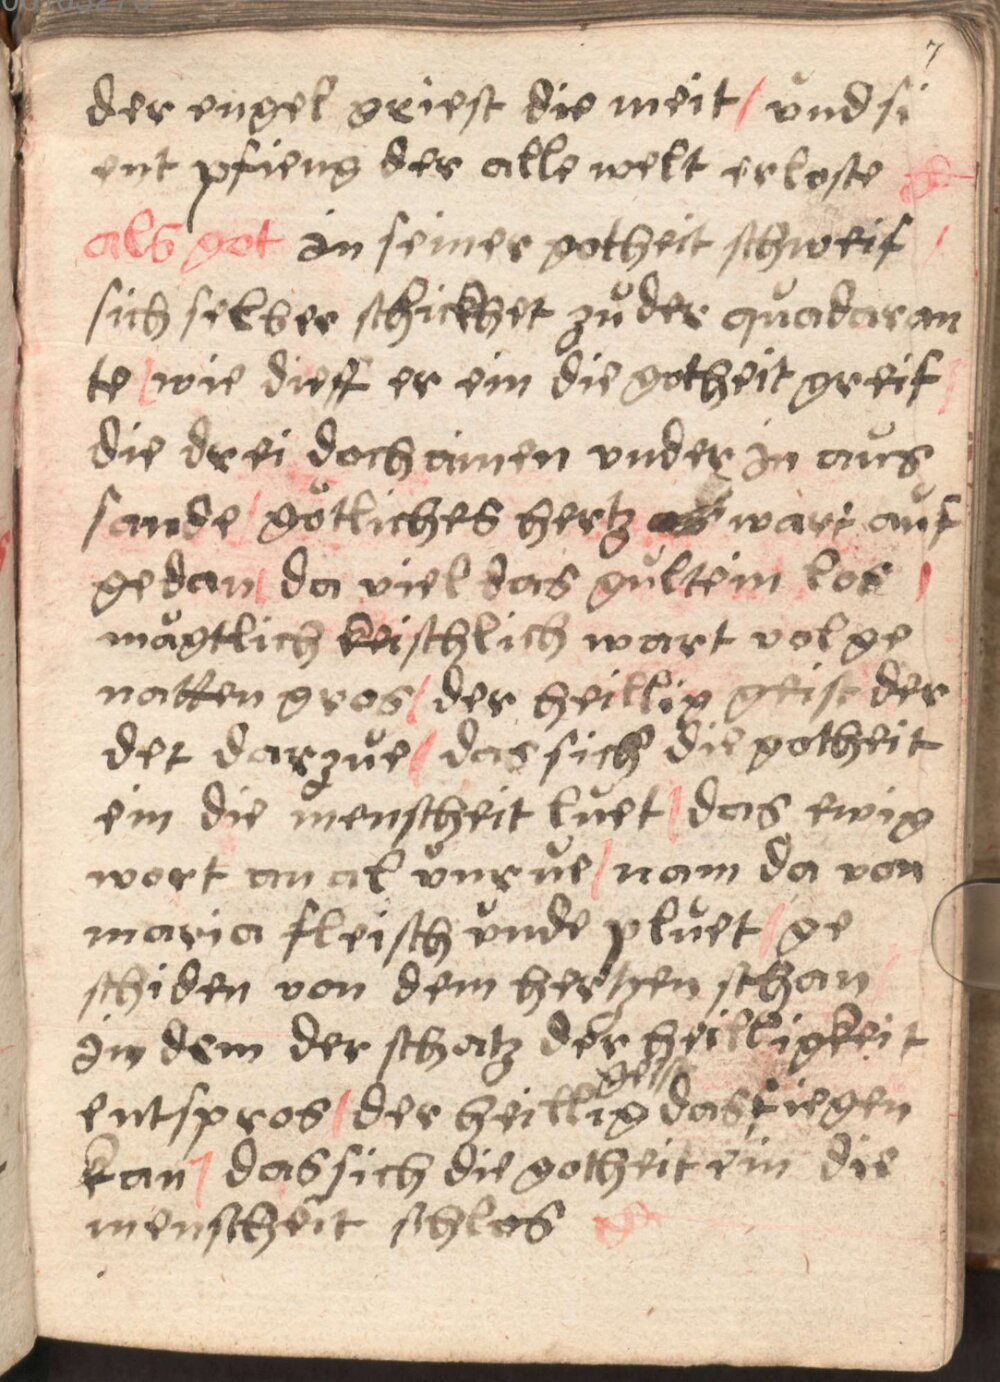 7
der engel griest die meit / vnd si
ent pfieng der alle welt erloste
als got in seiner gotheit schweif /
sich selber schickhet zů der quadaran
te / wie dieff er ein die gotheit greif /
die drei doch ainen vnder in aus
sande / götliches hertz wart auf
gedan / da viel das gultein los /
mägtlich keischlich wart vol ge
naden gros / der heillig geist der
det darzue / das sich die gotheit
ein die menscheit luet / das ewig
wort an al vnrue / nam da von
maria fleisch vnde pluet / ge
schiden von dem hertzen schan /
in dem der schatz der heilligkeit
geist
entspros / der heillig das fiegen
kan / das sich die gotheit ein die
menscheit schlos